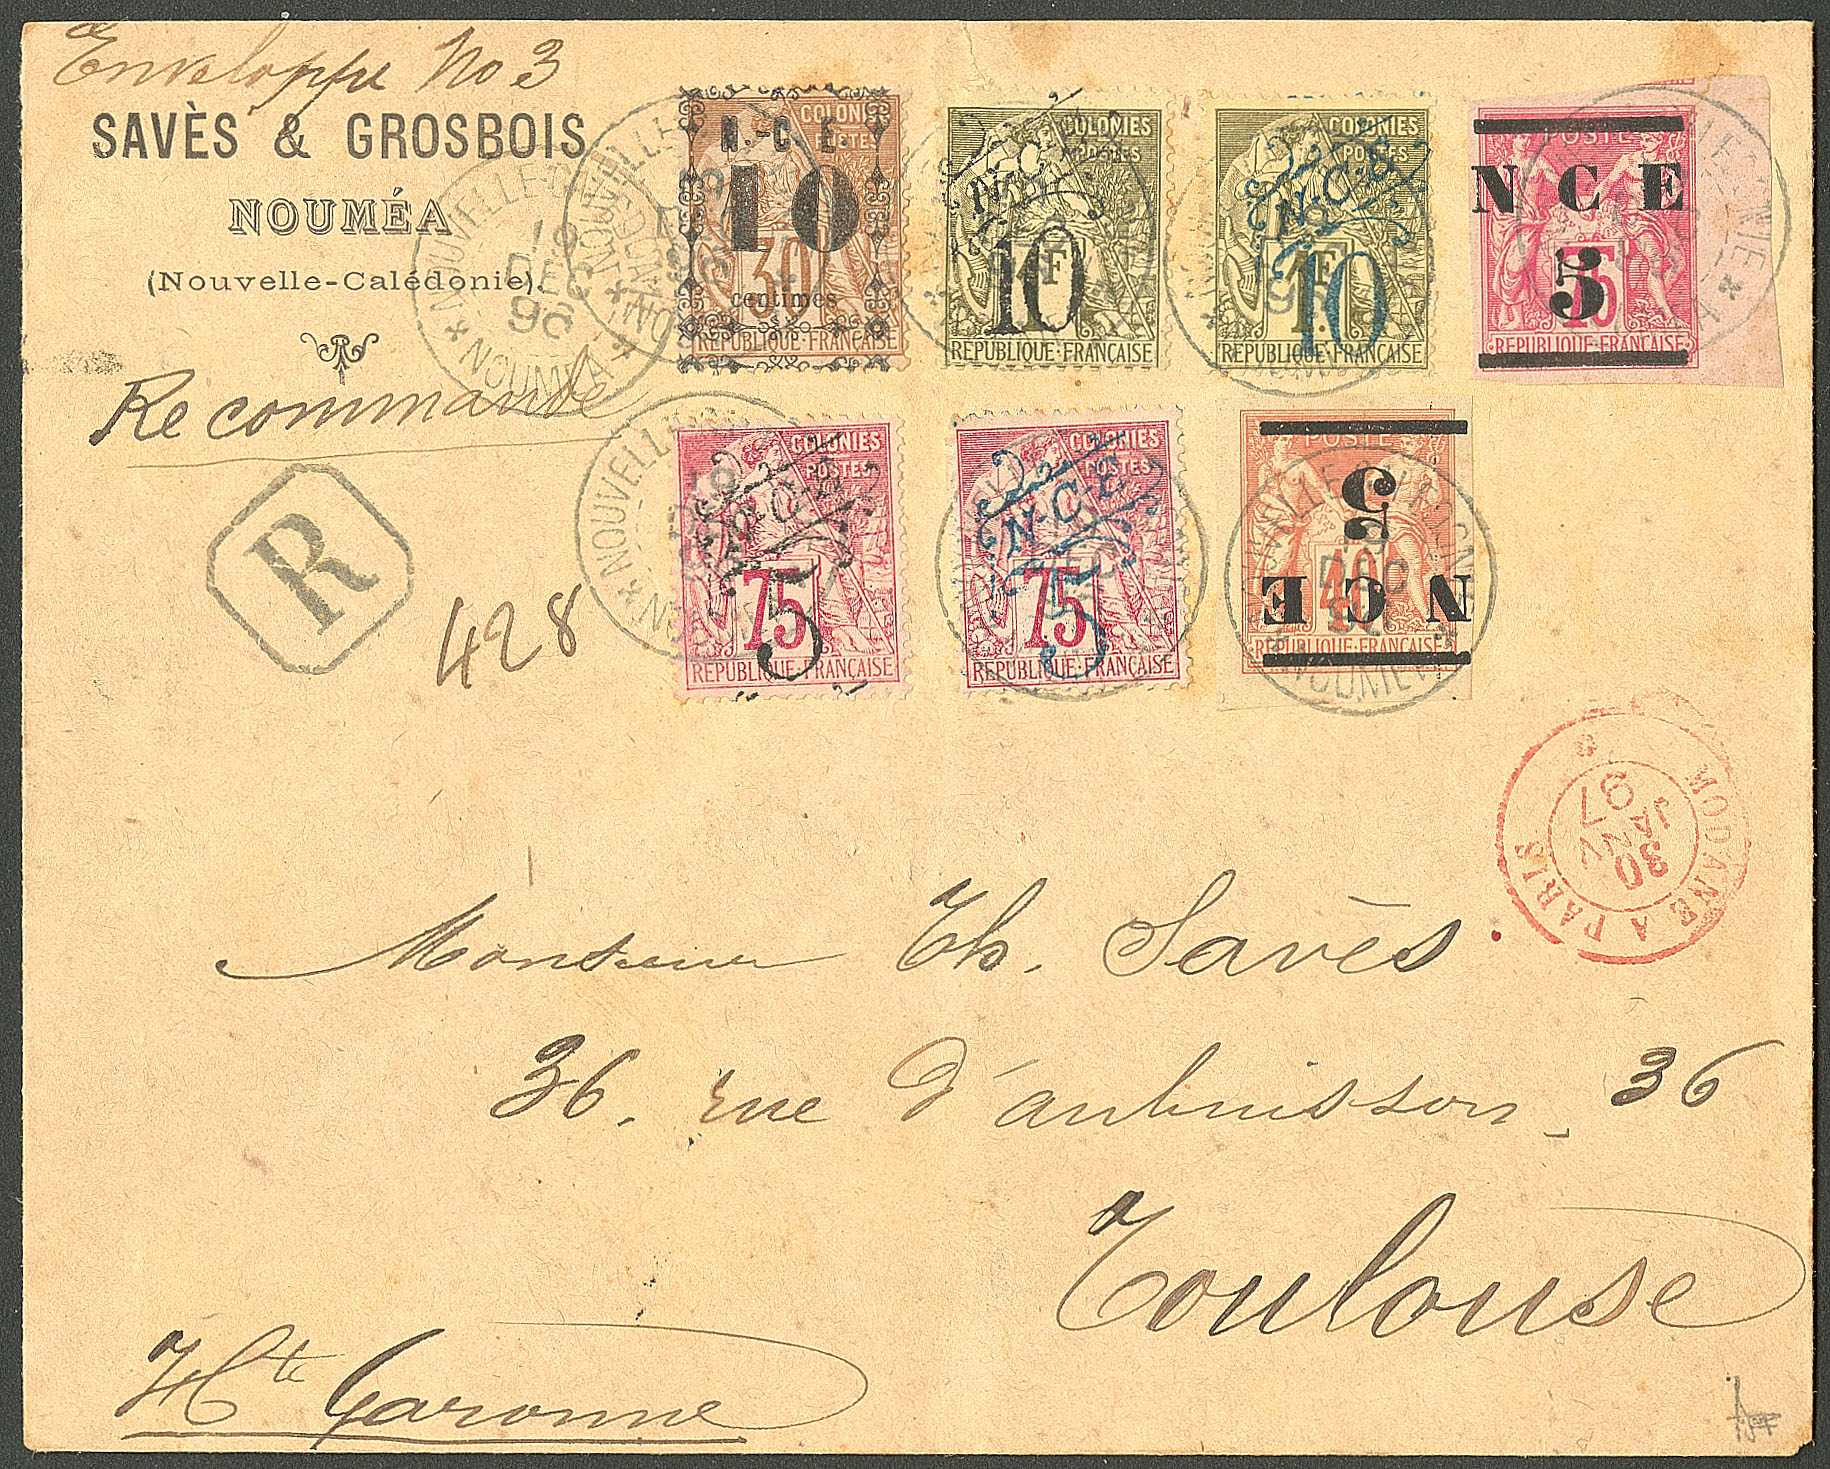 Enveloppe No 3
SAVÈS & GROSBOIS
NOUMÉA
(Nouvelle-Calédonie).
Recommandé
R
428
N.-C.E.
10
centimes
30
COLONIES
POSTES
RÉPUBLIQUE FRANÇAISE
COLONIES
POSTES
N-C-E
10
1F
RÉPUBLIQUE·FRANÇAISE
COLONIES
POSTES
N-C-E
10
1F
RÉPUBLIQUE·FRANÇAISE
POSTE
N C E
5
75
RÉPUBLIQUE·FRANÇAISE
COLONIES
POSTES
N-C-E
75
5
RÉPUBLIQUE·FRANÇAISE
COLONIES
POSTES
N-C-E
75
5
RÉPUBLIQUE·FRANÇAISE
POSTE
5
40
N C E
RÉPUBLIQUE FRANÇAISE
NOUVELLE-CALEDONIE
19
DEC
96
* NOUMEA *
MODANE A PARIS
30
JANV
97
Monsieur Th. Savès.
36. rue d'aubuisson_ 36
Toulouse
Hte Garonne